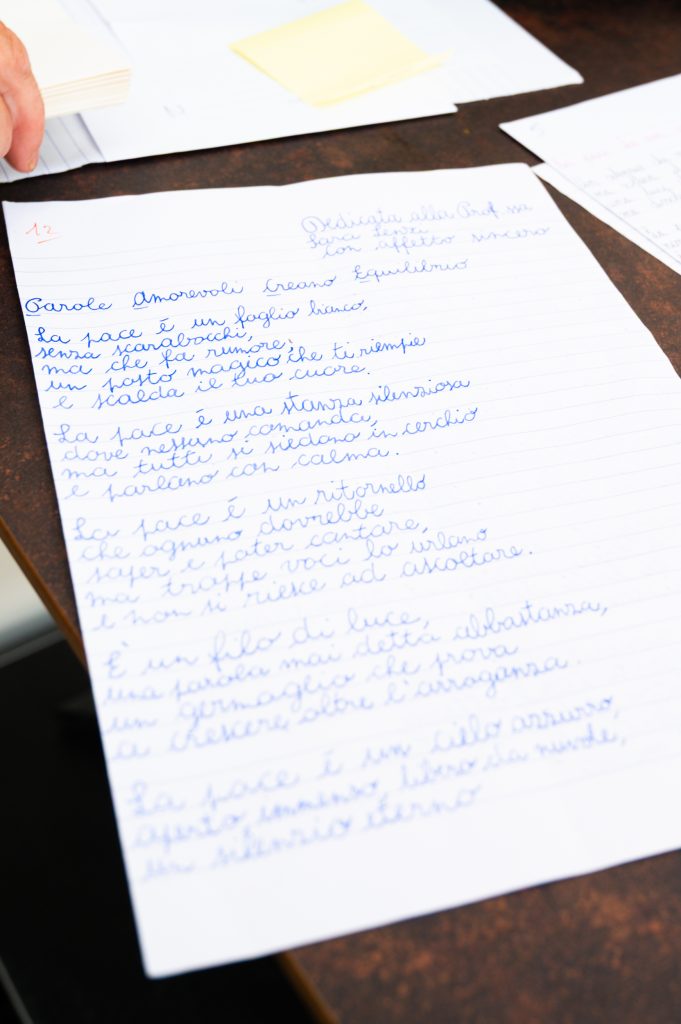 12
Dedicata alla Prof.ssa
Sara
con affetto sincero
Parole Amorevoli Creano Equilibrio
La pace é un foglio bianco,
senza scarabocchi,
ma che fa rumore;
un posto magico che ti riempie
e scalda il tuo cuore.
La pace é una stanza silenziosa
dove nessuno comanda,
ma tutti si siedono in cerchio
e parlano con calma.
La pace é un ritornello
che ognuno dovrebbe
saper e poter cantare,
ma troppe voci lo urlano
e non si riesce ad ascoltare.
É un filo di luce,
una parola mai detta abbastanza,
un germoglio che prova
a crescere oltre l'arroganza.
La pace é un cielo azzurro,
aperto, immenso, libero da nuvole,
un silenzio eterno